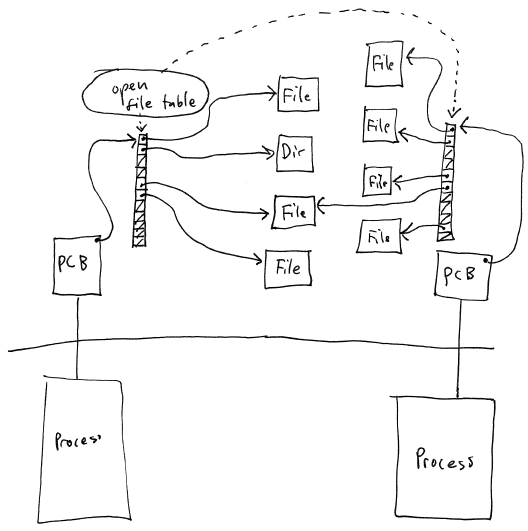 open
file table
File
File
File
Dir
File
File
File
File
PCB
PCB
Process
Process